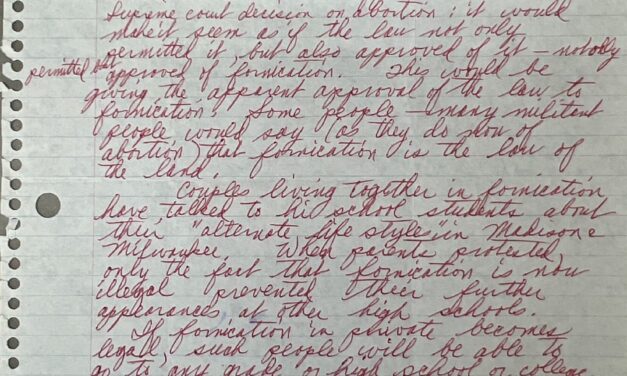 Supreme court decision on abortion; it would
make it seem as if the law not only
permitted it, but also approved of it – not only
permitted but approved of fornication. This would be
giving the apparent approval of the law to
fornication. Some people – many militant
people would say (as they do now of
abortion) that fornication is the law of
the land.
Couples living together in fornication
have talked to hi school students about
their "alternate life styles" in Madison &
Milwaukee. When parents protested,
only the fact that fornication is now
illegal prevented their further
appearances at other high schools.
If fornication in private becomes
legal, such people will be able to
go to any grade or high school or college